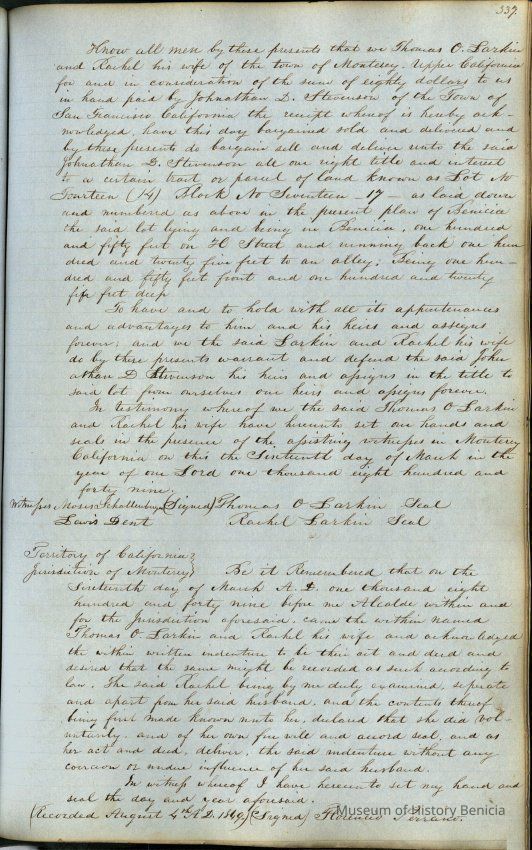 337.
Know all men by these presents that we Thomas O. Larkin
and Rachel his wife of the town of Monterey. Upper California
for and in consideration of the sum of eighty dollars to us
in hand paid by Johnathan D. Stevenson of the Town of
San Francisco, California the receipt whereof is hereby ack-
nowledged, have this day bargained sold and delivered and
by these presents do bargain sell and deliver unto the said
Johnathan D. Stevenson all our right title and interest
to a certain tract or parcel of land known as Lot No
Fourteen (14) Block No Seventeen - 17 - as laid down
and numbered as above in the present plan of Benicia
the said lot lying and being in Benicia, one hundred
and fifty feet on H Street and running back one hun
dred and twenty five feet to an alley; Being one hun-
dred and fifty feet front and one hundred and twenty
five feet deep
To have and to hold with all its appurtenances
and advantages to him and his heirs and assigns
forever; and we the said Larkin and Rachel his wife
do by these presents warrant and defend the said John
athan D Stevenson his heirs and assigns in the title to
said lot from ourselves our heirs and assigns forever.
In testimony whereof we the said Thomas O Larkin
and Rachel his wife have hereunto set our hands and
seals in the presence of the assisting witnesses in Monterey
California on this the Sixteenth day of March in the
year of our Lord one thousand eight hundred and
forty nine.
Witnesses, Moses Schallenberger (Signed) Thomas O Larkin Seal
Lewis Dent Rachel Larkin Seal
Territory of California }
Jurisdiction of Monterey } Be it Remembered that on the
Sixteenth day of March A.D. one thousand eight
hundred and forty nine before me Alcalde within and
for the Jurisdiction aforesaid, came the within named
Thomas O Larkin and Rachel his wife and acknowledged
the within written indenture to be their act and deed and
desired that the same might be recorded as such according to
law. The said Rachel being by me duly examined, seperate
and apart from her said husband, and the contents thereof
being first made known unto her, declared that she did vol-
untarily and of her own free will and accord seal, and as
her act and deed, deliver, the said indenture without any
coercion or undue influence of her said husband.
In witness whereof I have hereunto set my hand and
seal the day and year aforesaid.
(Recorded August 4th A.D. 1849) (Signed) Florencio Serrano.
Museum of History Benicia